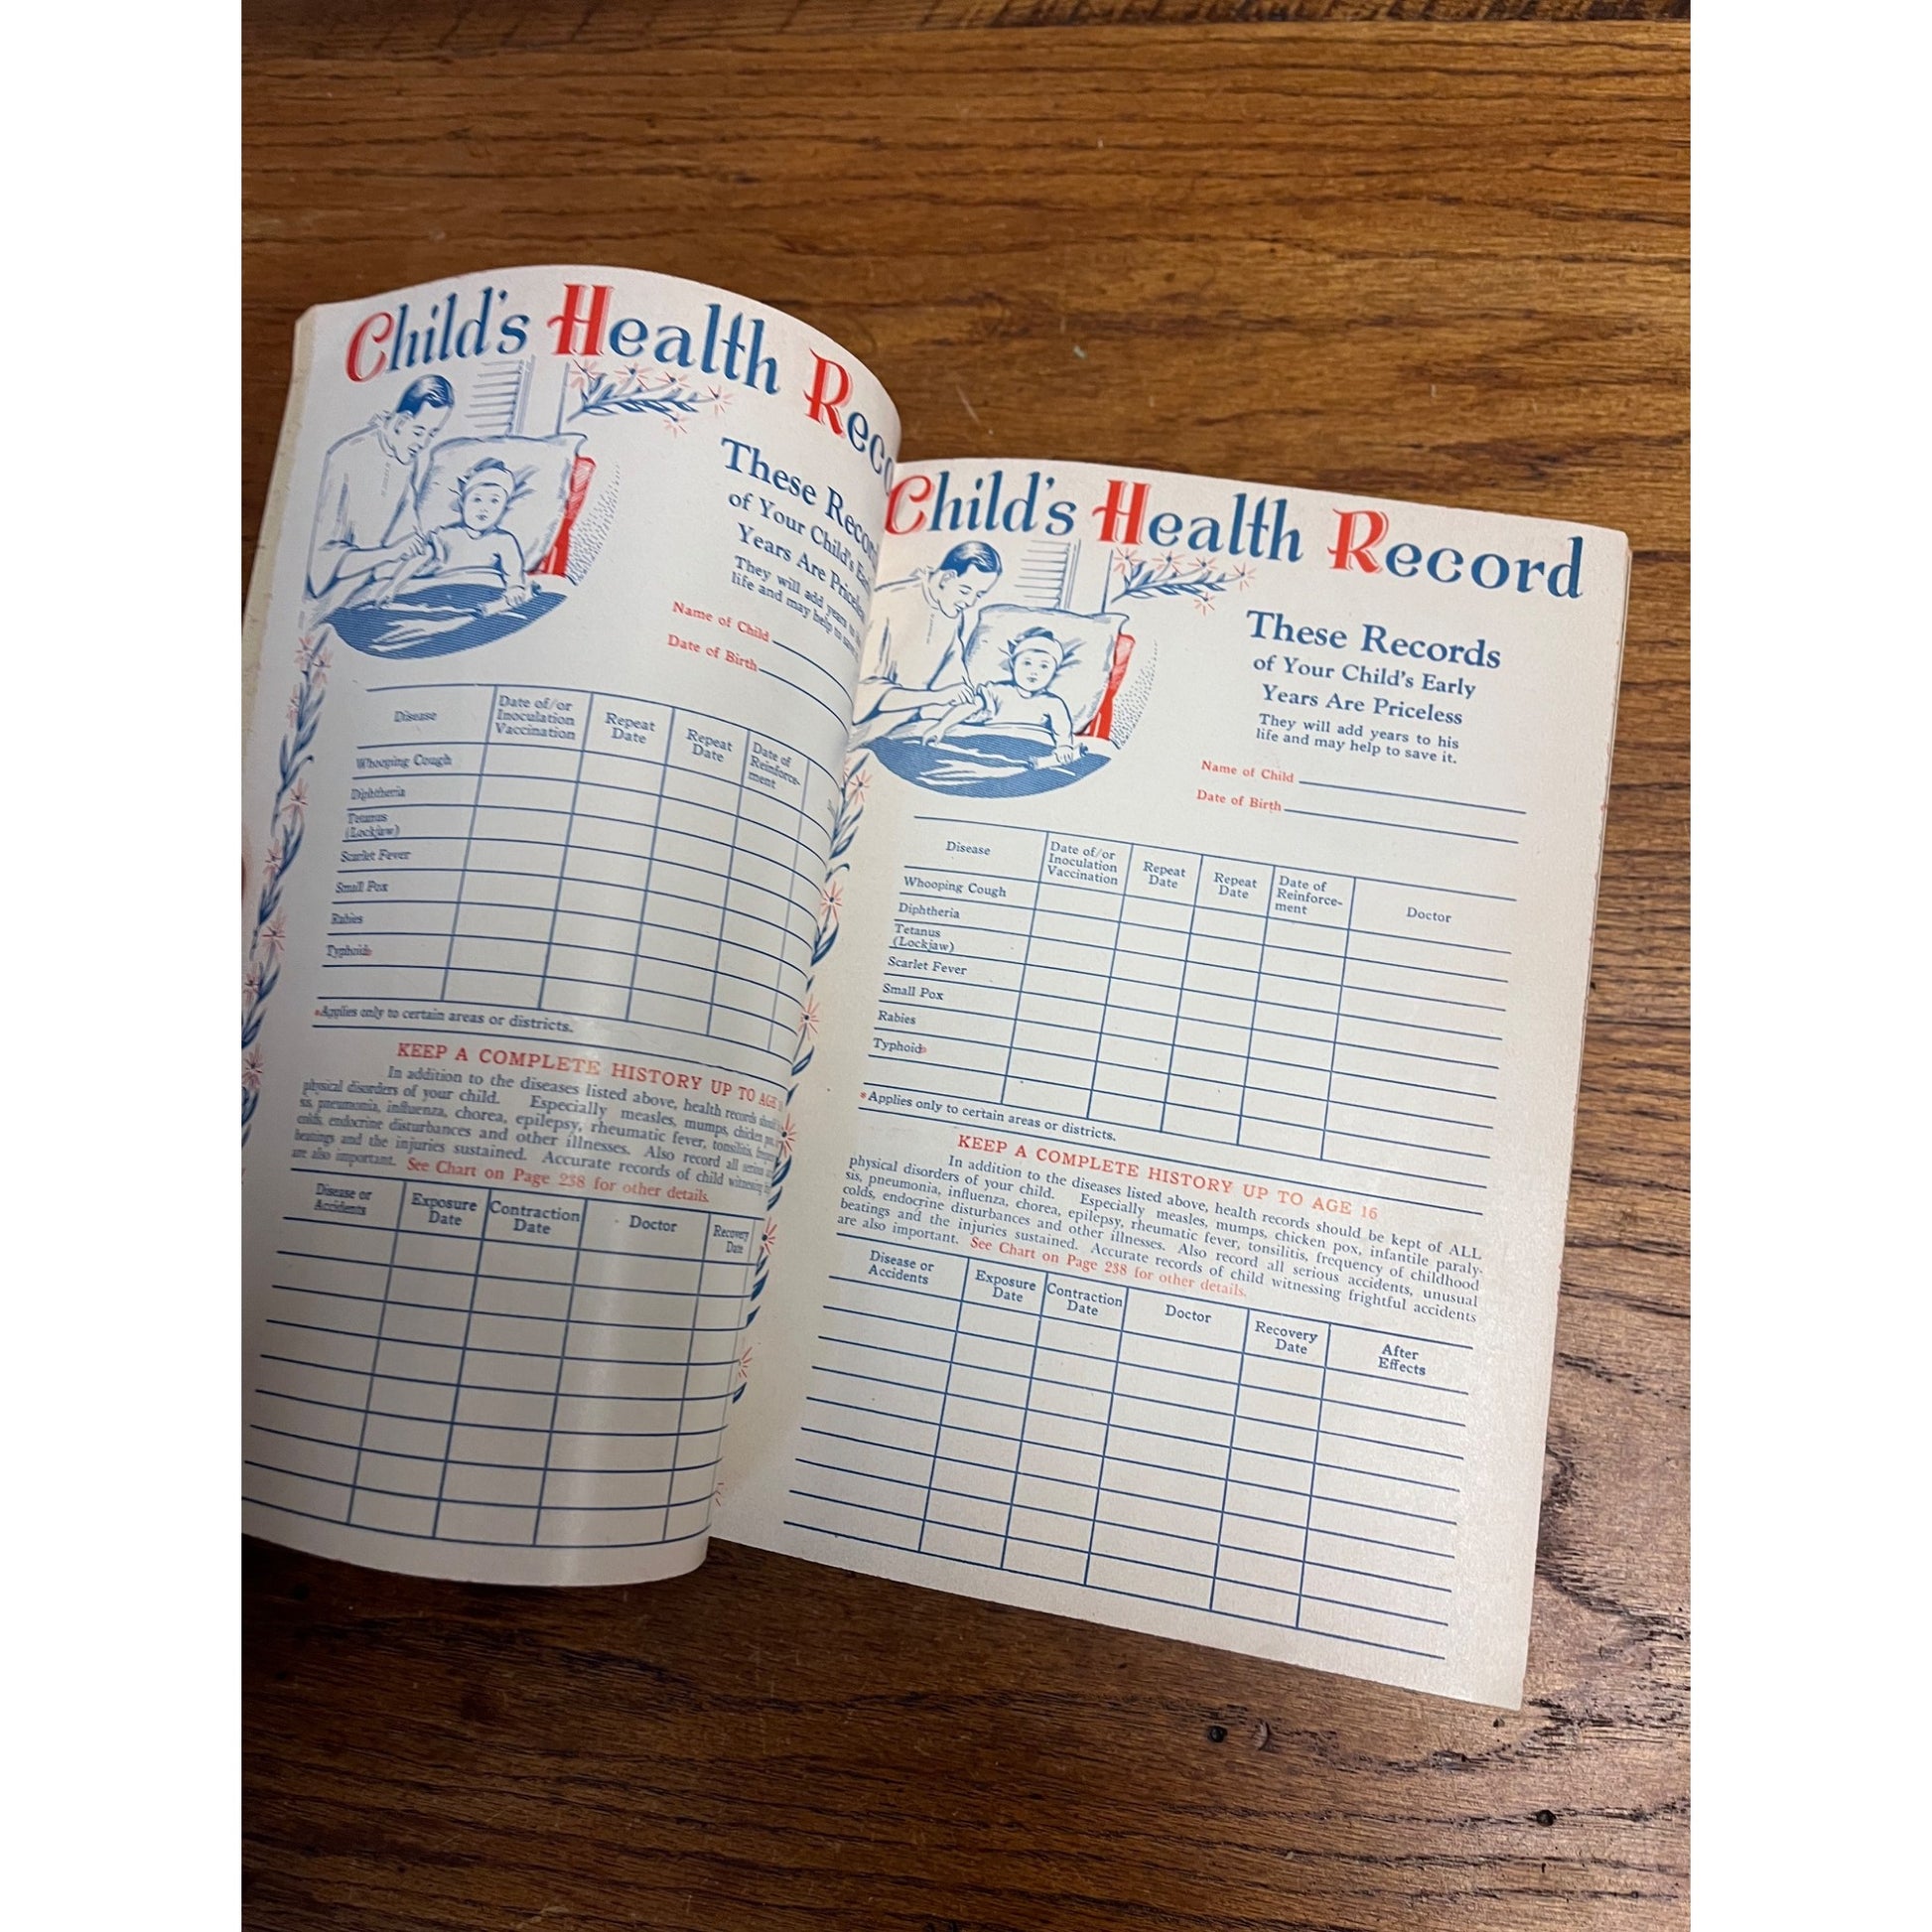 Child's Health Reco
These Record
of Your Child's Ea
Years Are Priceles
They will add years to
life and may help to save
Name of Child
Date of Birth
Disease
Date of/or
Inoculation
Vaccination
Repeat
Date
Repeat
Date
Date of
Reinforce-
ment
Whooping Cough
Diphtheria
Tetanus
(Lockjaw)
Scarlet Fever
Small Pox
Rabies
Typhoid*
*Applies only to certain areas or districts.
KEEP A COMPLETE HISTORY UP TO AGE
In addition to the diseases listed above, health records should
physical disorders of your child. Especially measles, mumps, chicken pox,
sis, pneumonia, influenza, chorea, epilepsy, rheumatic fever, tonsilitis,
colds, endocrine disturbances and other illnesses. Also record all serious
beatings and the injuries sustained. Accurate records of child witnessing
are also important. See Chart on Page 238 for other details.
Disease or
Accidents
Exposure
Date
Contraction
Date
Doctor
Recovery
Date
Child's Health Record
These Records
of Your Child's Early
Years Are Priceless
They will add years to his
life and may help to save it.
Name of Child
Date of Birth
Disease
Date of/or
Inoculation
Vaccination
Repeat
Date
Repeat
Date
Date of
Reinforce-
ment
Doctor
Whooping Cough
Diphtheria
Tetanus
(Lockjaw)
Scarlet Fever
Small Pox
Rabies
Typhoid*
*Applies only to certain areas or districts.
KEEP A COMPLETE HISTORY UP TO AGE 16
In addition to the diseases listed above, health records should be kept of ALL
physical disorders of your child. Especially measles, mumps, chicken pox, infantile paraly-
sis, pneumonia, influenza, chorea, epilepsy, rheumatic fever, tonsilitis, frequency of childhood
colds, endocrine disturbances and other illnesses. Also record all serious accidents, unusual
beatings and the injuries sustained. Accurate records of child witnessing frightful accidents
are also important. See Chart on Page 238 for other details.
Disease or
Accidents
Exposure
Date
Contraction
Date
Doctor
Recovery
Date
After
Effects